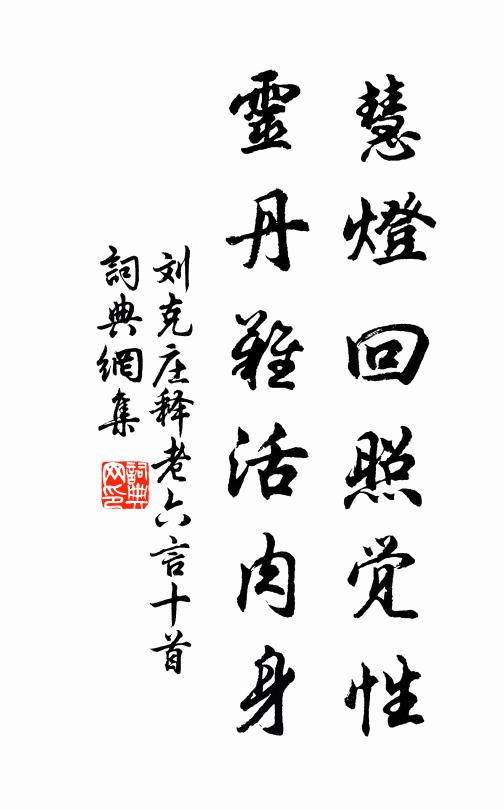 慧燈回照觉性
靈丹難活肉身
刘克庄释老六言十首
詞典網集
詞典网印